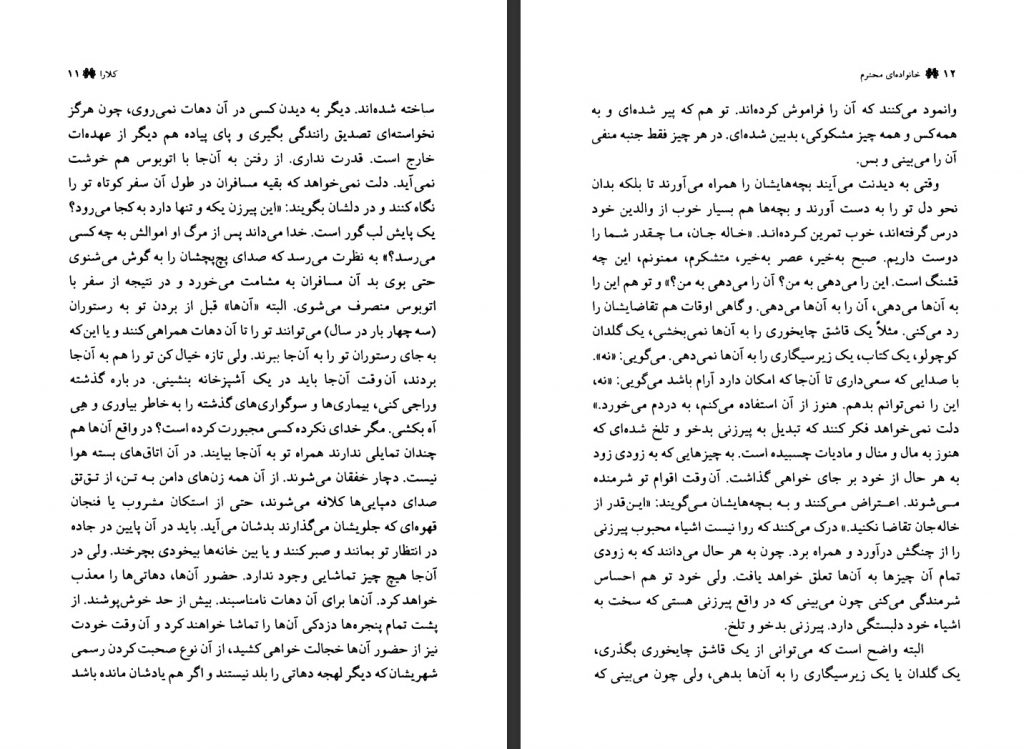 کلارا ۱۱
ساخته شده‌اند. دیگر به دیدن کسی در آن دهات نمی‌روی، چون هرگز
نخواسته‌ای تصدیق رانندگی بگیری و پای پیاده هم دیگر از عهده‌ات
خارج است. قدرت نداری. از رفتن به آن‌جا با اتوبوس هم خوشت
نمی‌آید. دلت نمی‌خواهد که بقیه مسافران در طول آن سفر کوتاه تو را
نگاه کنند و در دلشان بگویند: «این پیرزن یکه و تنها دارد به کجا می‌رود؟
یک پایش لب گور است. خدا می‌داند پس از مرگ او اموالش به چه کسی
می‌رسد؟» به نظرت می‌رسد که صدای پچ‌پچشان را به گوش می‌شنوی
حتی بوی بد آن مسافران به مشامت می‌خورد و در نتیجه از سفر با
اتوبوس منصرف می‌شوی. البته «آن‌ها» قبل از بردن تو به رستوران
(سه چهار بار در سال) می‌توانند تو را تا آن دهات همراهی کنند و یا این‌که
به جای رستوران تو را به آن‌جا ببرند. ولی تازه خیال کن تو را هم به آن‌جا
بردند، آن‌وقت آن‌جا باید در یک آشپزخانه بنشینی. در باره گذشته
وراجی کنی، بیماری‌ها و سوگواری‌های گذشته را به خاطر بیاوری و هِی
آه بکشی. مگر خدای نکرده کسی مجبورت کرده است؟ در واقع آن‌ها هم
چندان تمایلی ندارند همراه تو به آن‌جا بیایند. در آن اتاق‌های بسته هوا
نیست. دچار خفقان می‌شوند. از آن همه زن‌های دامن به تن، از تق‌تق
صدای دمپایی‌ها کلافه می‌شوند، حتی از استکان مشروب یا فنجان
قهوه‌ای که جلویشان می‌گذارند بدشان می‌آید. باید در آن پایین در جاده
در انتظار تو بمانند و صبر کنند و یا بین خانه‌ها بیخودی بچرخند. ولی در
آن‌جا هیچ چیز تماشایی وجود ندارد. حضور آن‌ها، دهاتی‌ها را معذب
خواهد کرد. آن‌ها برای آن دهات نامناسبند. بیش از حد خوش‌پوشند. از
پشت تمام پنجره‌ها دزدکی آن‌ها را تماشا خواهند کرد و آن وقت خودت
نیز از حضور آن‌ها خجالت خواهی کشید، از آن نوع صحبت کردن رسمی
شهریشان که دیگر لهجه دهاتی را بلد نیستند و اگر هم یادشان مانده باشد
۱۲ خانواده‌ای محترم
وانمود می‌کنند که آن را فراموش کرده‌اند. تو هم که پیر شده‌ای و به
همه‌کس و همه چیز مشکوکی، بدبین شده‌ای. در هر چیز فقط جنبه منفی
آن را می‌بینی و بس.
وقتی به دیدنت می‌آیند بچه‌هایشان را همراه می‌آورند تا بلکه بدان
نحو دل تو را به دست آورند و بچه‌ها هم بسیار خوب از والدین خود
درس گرفته‌اند، خوب تمرین کرده‌اند. «خاله جان، ما چقدر شما را
دوست داریم. صبح به‌خیر، عصر به‌خیر، متشکرم، ممنونم، این چه
قشنگ است. این را می‌دهی به من؟ آن را می‌دهی به من؟» و تو هم این را
به آن‌ها می‌دهی، آن را به آن‌ها می‌دهی. وگاهی اوقات هم تقاضایشان را
رد می‌کنی. مثلاً یک قاشق چایخوری را به آن‌ها نمی‌بخشی، یک گلدان
کوچولو، یک کتاب، یک زیرسیگاری را به آن‌ها نمی‌دهی. می‌گویی: «نه».
با صدایی که سعی‌داری تا آن‌جا که امکان دارد آرام باشد می‌گویی: «نه،
این را نمی‌توانم بدهم. هنوز از آن استفاده می‌کنم، به دردم می‌خورد.»
دلت نمی‌خواهد فکر کنند که تبدیل به پیرزنی بدخو و تلخ شده‌ای که
هنوز به مال و منال و مادیات چسبیده است. به چیزهایی که به زودی زود
به هر حال از خود بر جای خواهی گذاشت. آن‌وقت اقوام تو شرمنده
می‌شوند. اعتراض می‌کنند و به بچه‌هایشان می‌گویند: «این‌قدر از
خاله‌جان تقاضا نکنید.» درک می‌کنند که روا نیست اشیاء محبوب پیرزنی
را از چنگش درآورد و همراه برد. چون به هر حال می‌دانند که به زودی
تمام آن چیزها به آن‌ها تعلق خواهد یافت. ولی خود تو هم احساس
شرمندگی می‌کنی چون می‌بینی که در واقع پیرزنی هستی که سخت به
اشیاء خود دلبستگی دارد. پیرزنی بدخو و تلخ.
البته واضح است که می‌توانی از یک قاشق چایخوری بگذری،
یک گلدان یا یک زیرسیگاری را به آن‌ها بدهی، ولی چون می‌بینی که